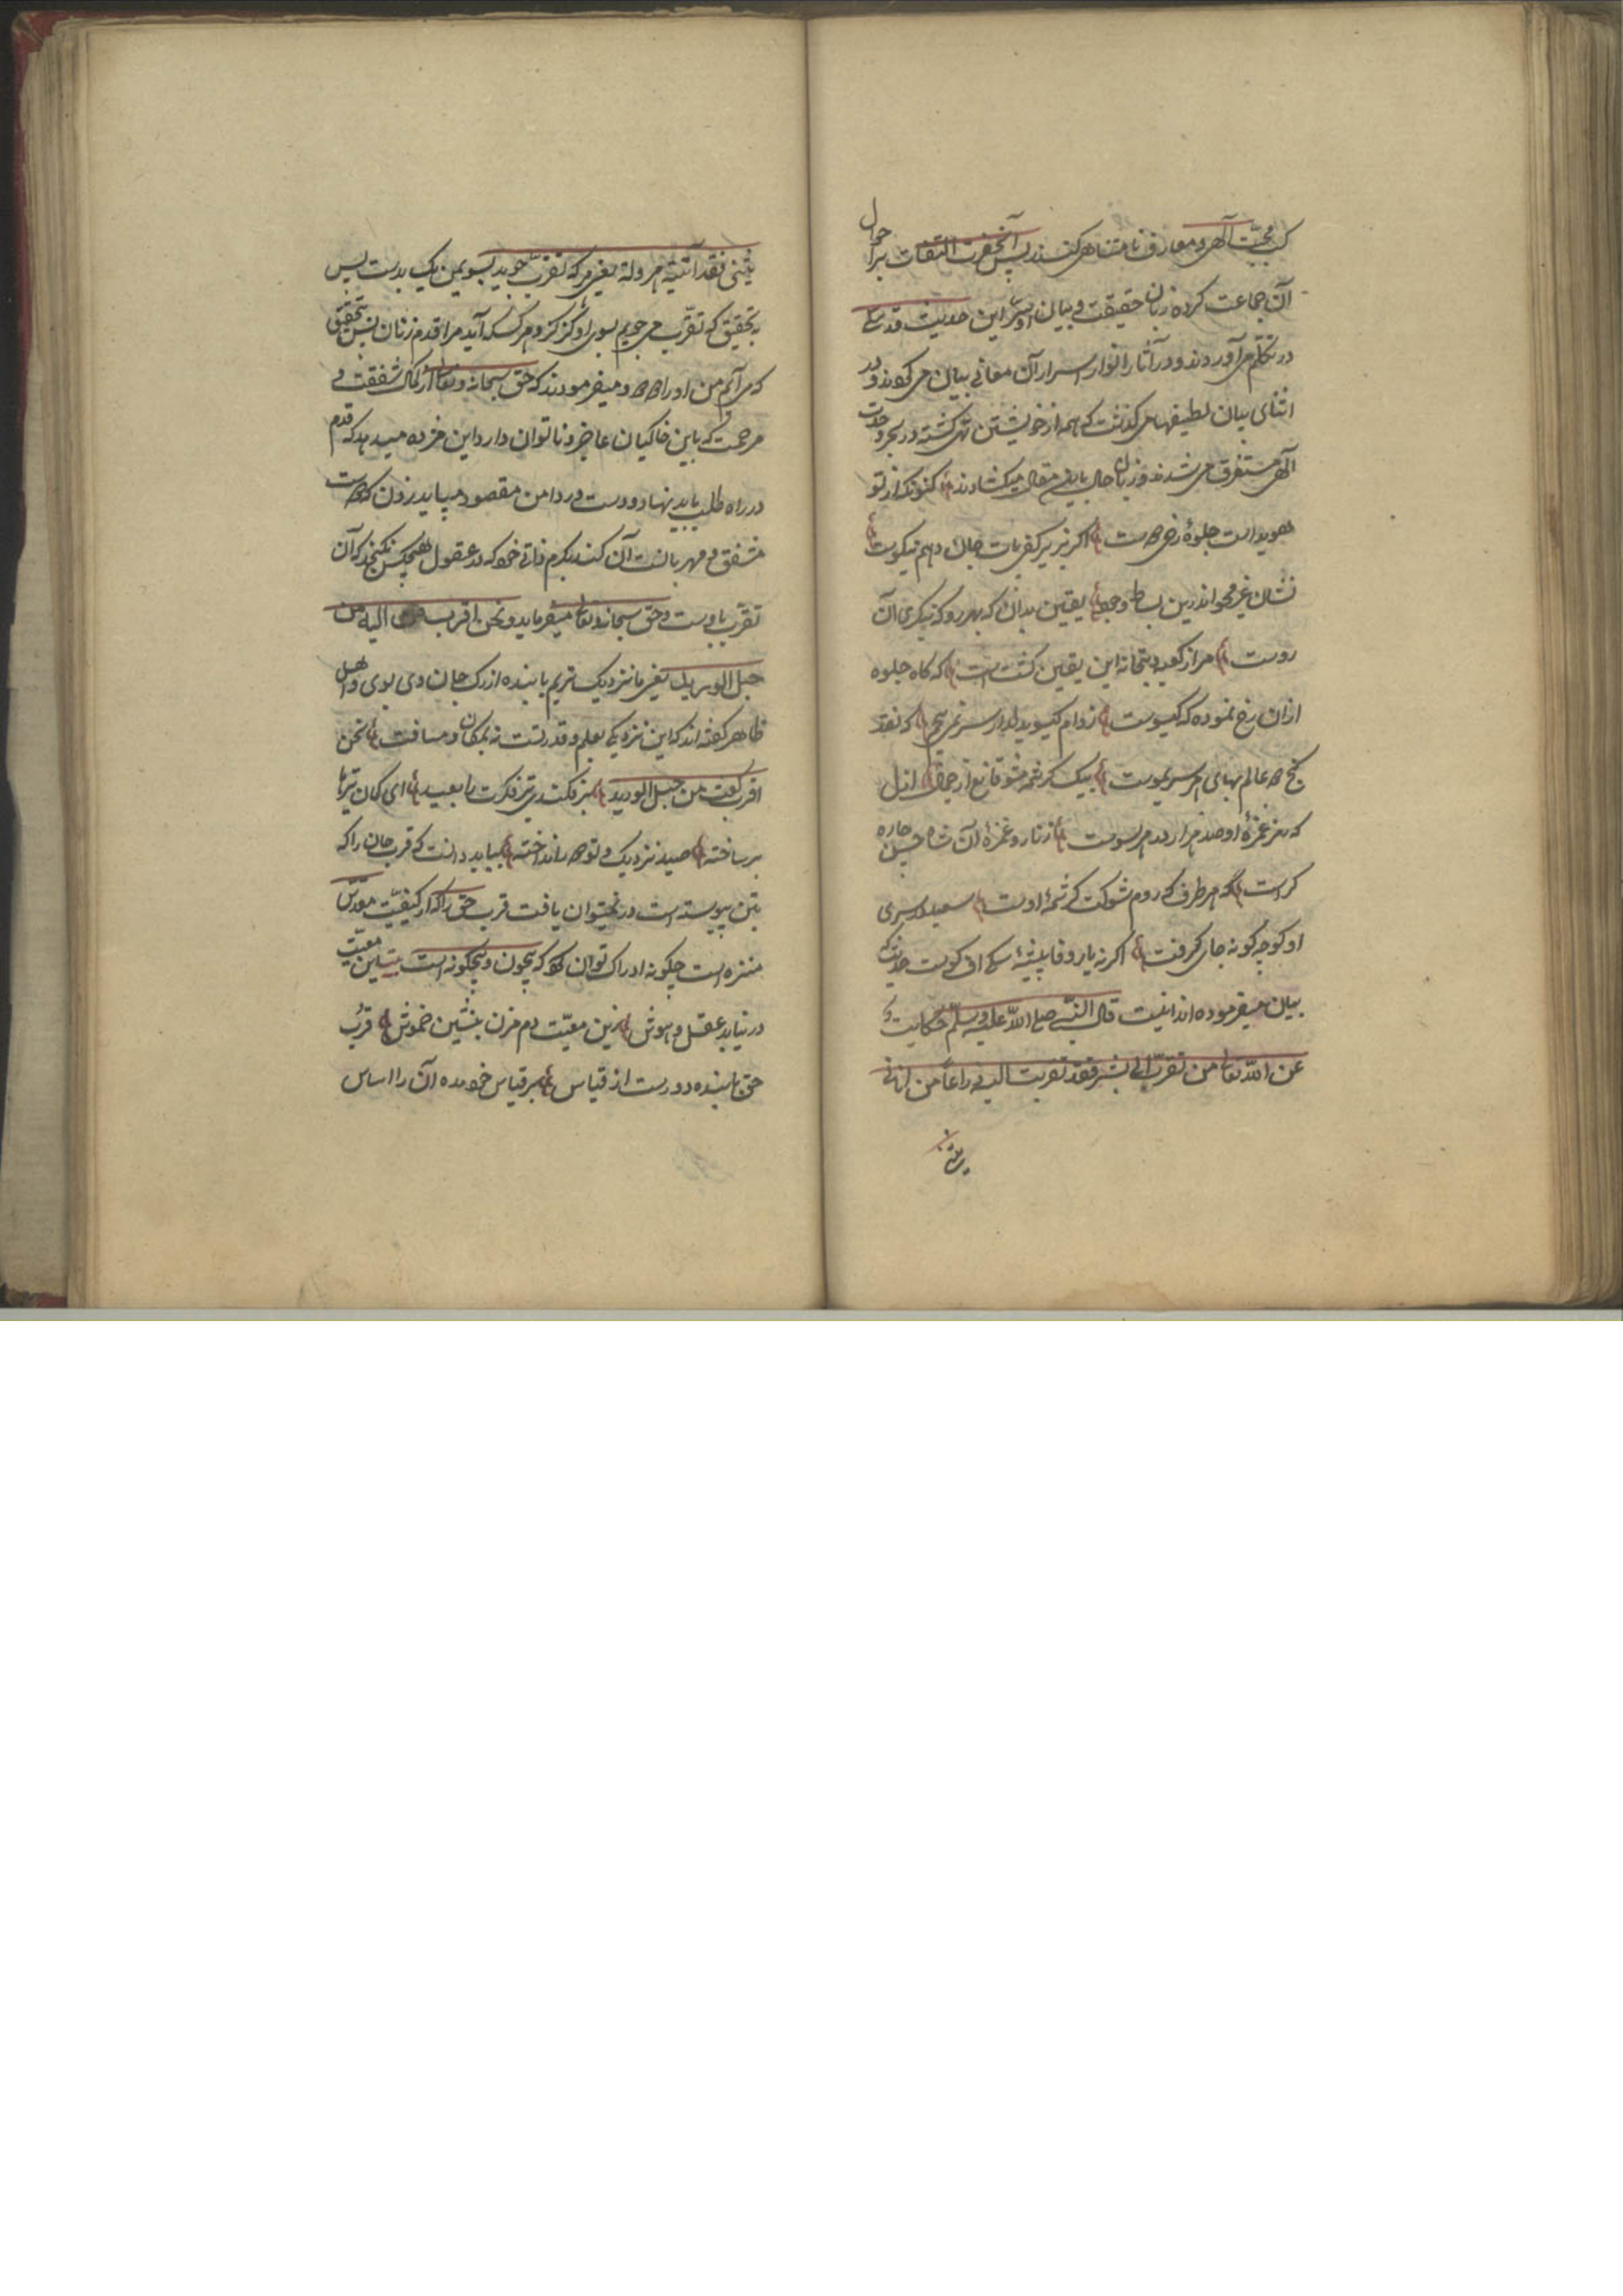 کسب محبّت آلهی و معارف نامتناهی کنند پس آنحضرت التفات بر احوال
آن جماعت کرده زبان حقیقت بیان او بشر این حدیث قدسی
در تکلم می‌آوردند و در آثار انوار اسرار آن معانی بیان می‌کردند و در
اثنای بیان لطیفها می‌گذشت که همه از خویشتن تهی گشته در بحر وحدت
آلهی مستغرق می‌شدند و زبان حال باین مقال میکشادند
هویداست جلوهٔ رخ اگر نیکوست
نشان غیر مجو اندرین بساط وجود یقین بدان که بهر رو که بنگری آن
روست مرا ز کعبه و بتخانه این یقین گشته است که گاه جلوه
ازان رخ نموده گه گیسوست ز دام گیسوی دلدار سر نمی‌پیچم که نقد
گنج عالم بهای هر سر موست بیک کرشمه مشو قانع از جمال ازل
که هر غمزهٔ او صد هزار در هر سوست ز ناز و غمزهٔ آن شاه حسن چاره
کراست که هر طرف که روم شوکت کرشمهٔ اوست
او کوچه گونه جای گرفت اگر نه یار وفا پیشهٔ حدیث که
بیان میفرموده‌اند اینست قال النبی صلی الله علیه و سلم حکایت
عن الله تعالی من تقرّب الیّ بشبر فقد تقربت الیه ذراعاً من اتانی
یمشی
یمشی فقد اتیته هرولة یعنی هر که تقرّب جوید بسوی من یک بدست پس
به تحقیق که تقرّب می‌جویم بسوی او گز گز و هر کسکه آید مرا قدم زنان پس بتحقیق
که می‌آیم من او را و میفرمودند که حق سبحانه و تعالی از کمال شفقت و
مرحمت که باین خاکیان عاجز و ناتوان دارد این مژده میدهد که قدم
در راه طلب باید نهاد و دست در دامن مقصود میباید زدن که دوست
مشفق و مهربانست آن کند بکرم ذاتی خود که در عقول هیچکس نگنجد که آن
تقرّب باوست و حق سبحانه و تعالی میفرماید و نحن اقرب الیه من
حبل الورید یعنی ما نزدیک تریم با بنده از رگ جان وی بوی و اهل
ظاهر گفته‌اند که این نزدیکی بعلم و قدرتست نه بمکان و مسافت نحن
اقرب گفت من حبل الورید تیر فکرت را بعید ای کمان تیرها
بر ساخته صید نزدیک و تو دور انداخته بباید دانست که قرب جان را که
بتن پیوسته است در نمیتوان یافت قرب حق را که از کیفیّت مقدّس
منزه است چگونه ادراک توان کرد که بیچون و بیچگونه است این معیّت
در نیابد عقل و هوش زین معیّت دم مزن بنشین خموش قرب
حق با بنده دورست از قیاس بر قیاس خود منه آن را اساس